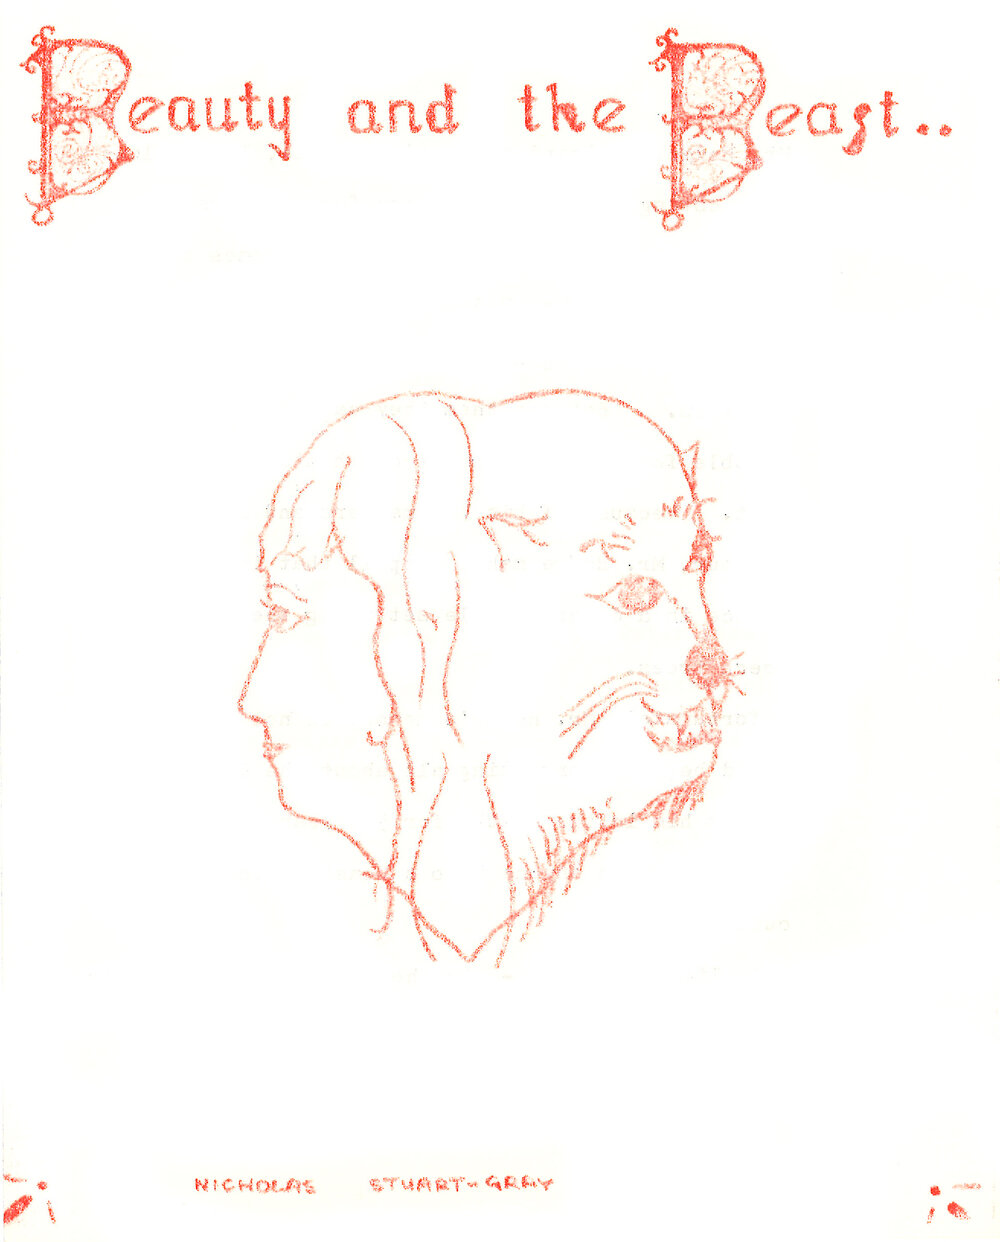 Beauty and the Beast..
NICHOLAS STUART-GREY